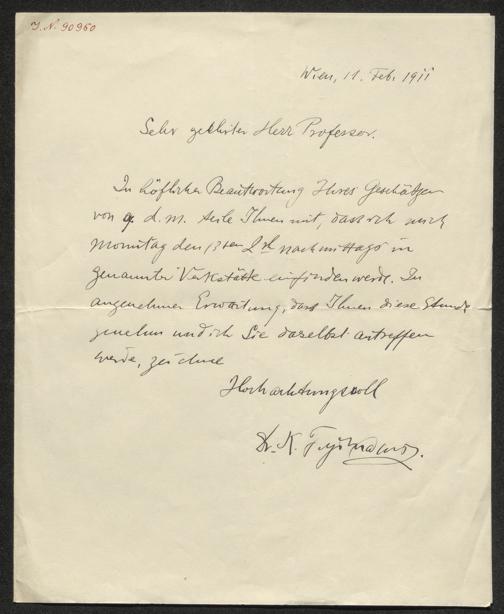 J.N. 90960
Wien, 11. Feb. 1911
Sehr geehrter Herr Professor.
In höflicher Beantwortung Ihres Geschätzen
von 9 d. m. teile Ihnen mit, dass ich mich
Monntag den 13ten 2h nachmittags in
genannter Werkstätte einfinden werde. In
angenehmer Erwartung, dass Ihnen diese Stunde
genehm und ich Sie daselbst antreffen
werde, zeichne
Hochachtungsvoll
Dr. K.